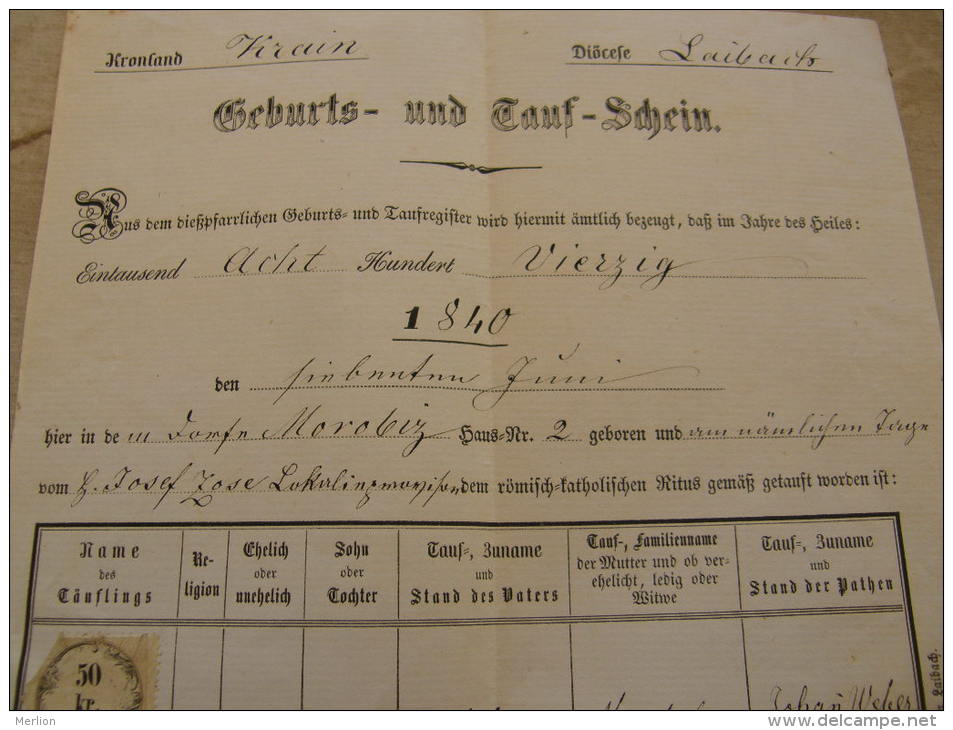 Kronland Krain Diöcese Laibach
Geburts- und Tauf-Schein.
Aus dem dießpfarrlichen Geburts- und Taufregister wird hiermit ämtlich bezeugt, daß im Jahre des Heiles:
Eintausend Acht Hundert Vierzig
1840
den siebenten Juni
hier in dem Dorfe Morobiz Haus-Nr. 2 geboren und am nämlichen Tage
vom H. Josef Zose Lokalieprovisor dem römisch-katholischen Ritus gemäß getauft worden ist:
Name des Täuflings
Re-ligion
Ehelich oder unehelich
Sohn oder Tochter
Tauf-, Zuname und Stand des Vaters
Tauf-, Familienname der Mutter und ob ver-ehelicht, ledig oder Witwe
Tauf-, Zuname und Stand der Pathen
50 kr.
Johan Weber
Laibach.
Merlion
delcampe.net